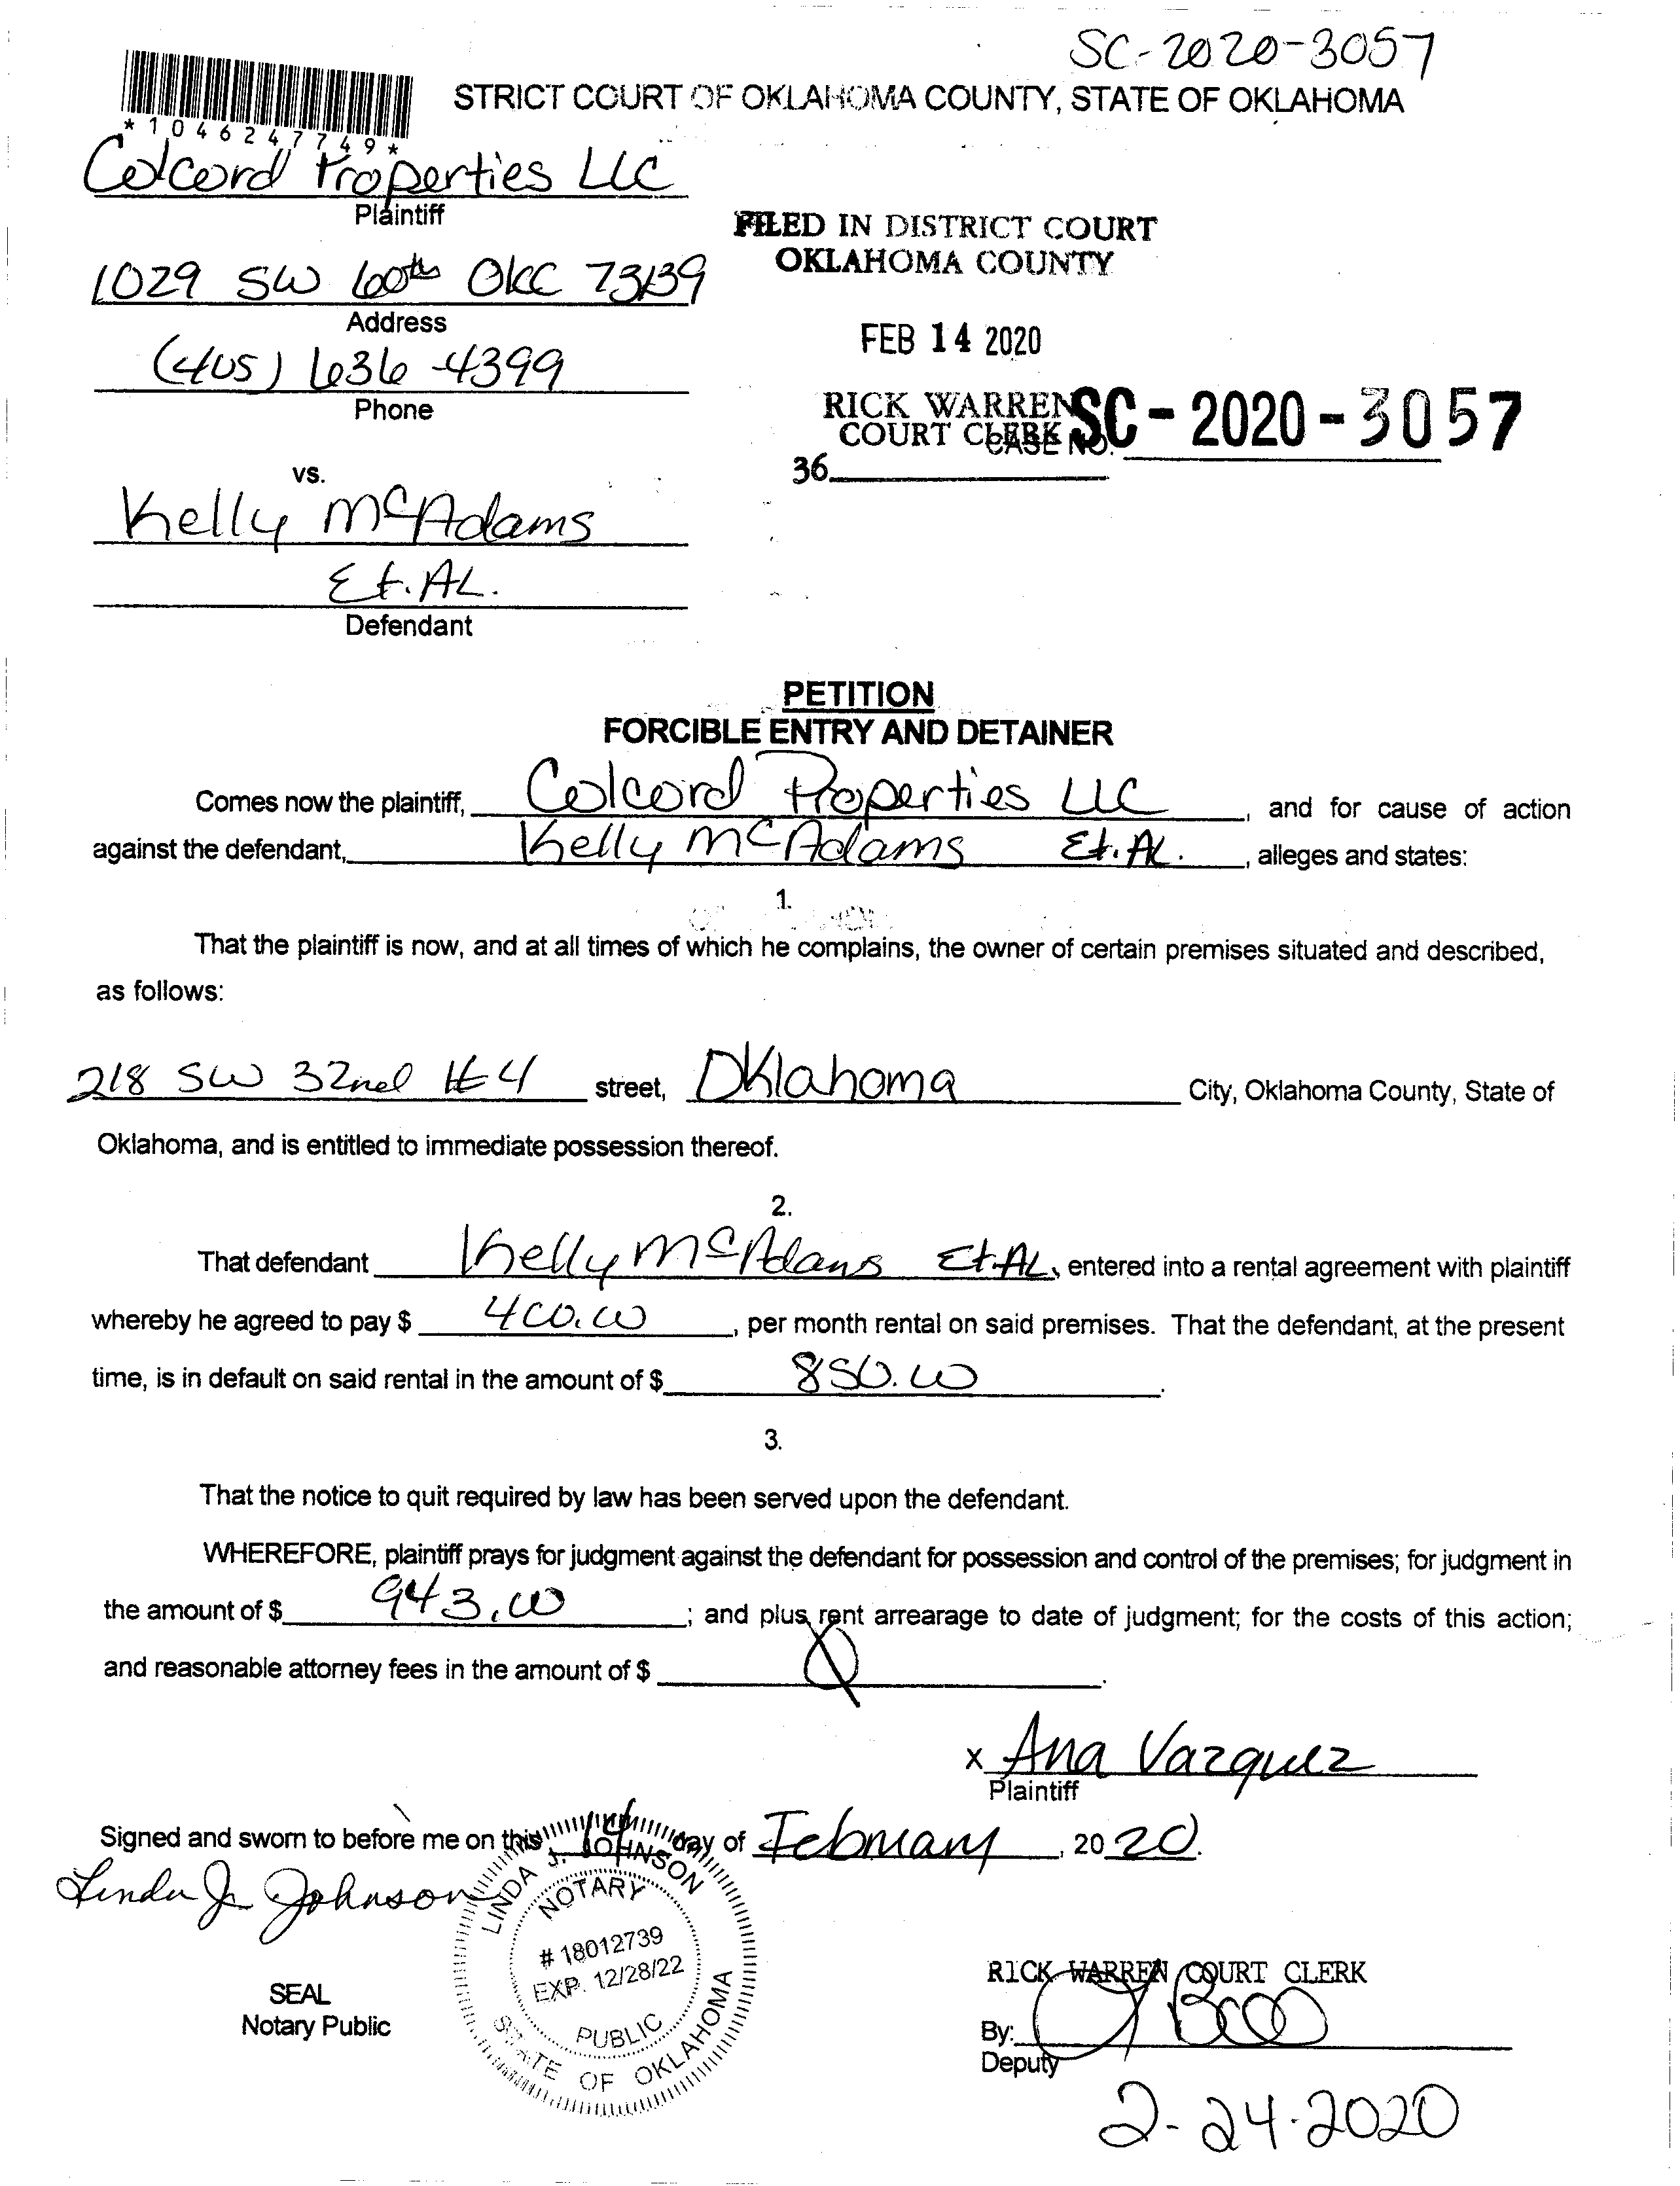 SC-2020-3057
STRICT COURT OF OKLAHOMA COUNTY, STATE OF OKLAHOMA
*1046247749*
Colcord Properties LLC
Plaintiff
FILED IN DISTRICT COURT
OKLAHOMA COUNTY
1029 SW 60th OKC 73139
Address
FEB 14 2020
(405) 636-4399
Phone
RICK WARREN
COURT CLERK
CASE NO. SC-2020-3057
36
vs.
Kelly McAdams
Et. AL.
Defendant
PETITION
FORCIBLE ENTRY AND DETAINER
Comes now the plaintiff, Colcord Properties LLC, and for cause of action
against the defendant, Kelly McAdams Et. AL., alleges and states:
1.
That the plaintiff is now, and at all times of which he complains, the owner of certain premises situated and described,
as follows:
218 SW 32nd #4 street, Oklahoma City, Oklahoma County, State of
Oklahoma, and is entitled to immediate possession thereof.
2.
That defendant Kelly McAdams Et. AL, entered into a rental agreement with plaintiff
whereby he agreed to pay $ 400.00, per month rental on said premises. That the defendant, at the present
time, is in default on said rental in the amount of $ 850.00.
3.
That the notice to quit required by law has been served upon the defendant.
WHEREFORE, plaintiff prays for judgment against the defendant for possession and control of the premises; for judgment in
the amount of $ 943.00; and plus rent arrearage to date of judgment; for the costs of this action;
and reasonable attorney fees in the amount of $ 0.
x Ana Vazquez
Plaintiff
Signed and sworn to before me on this 14 day of February, 2020.
Linda J. Johnson
LINDA J. JOHNSON
NOTARY
# 18012739
EXP. 12/28/22
PUBLIC
STATE OF OKLAHOMA
SEAL
Notary Public
RICK WARREN COURT CLERK
By:
Deputy
2-24-2020